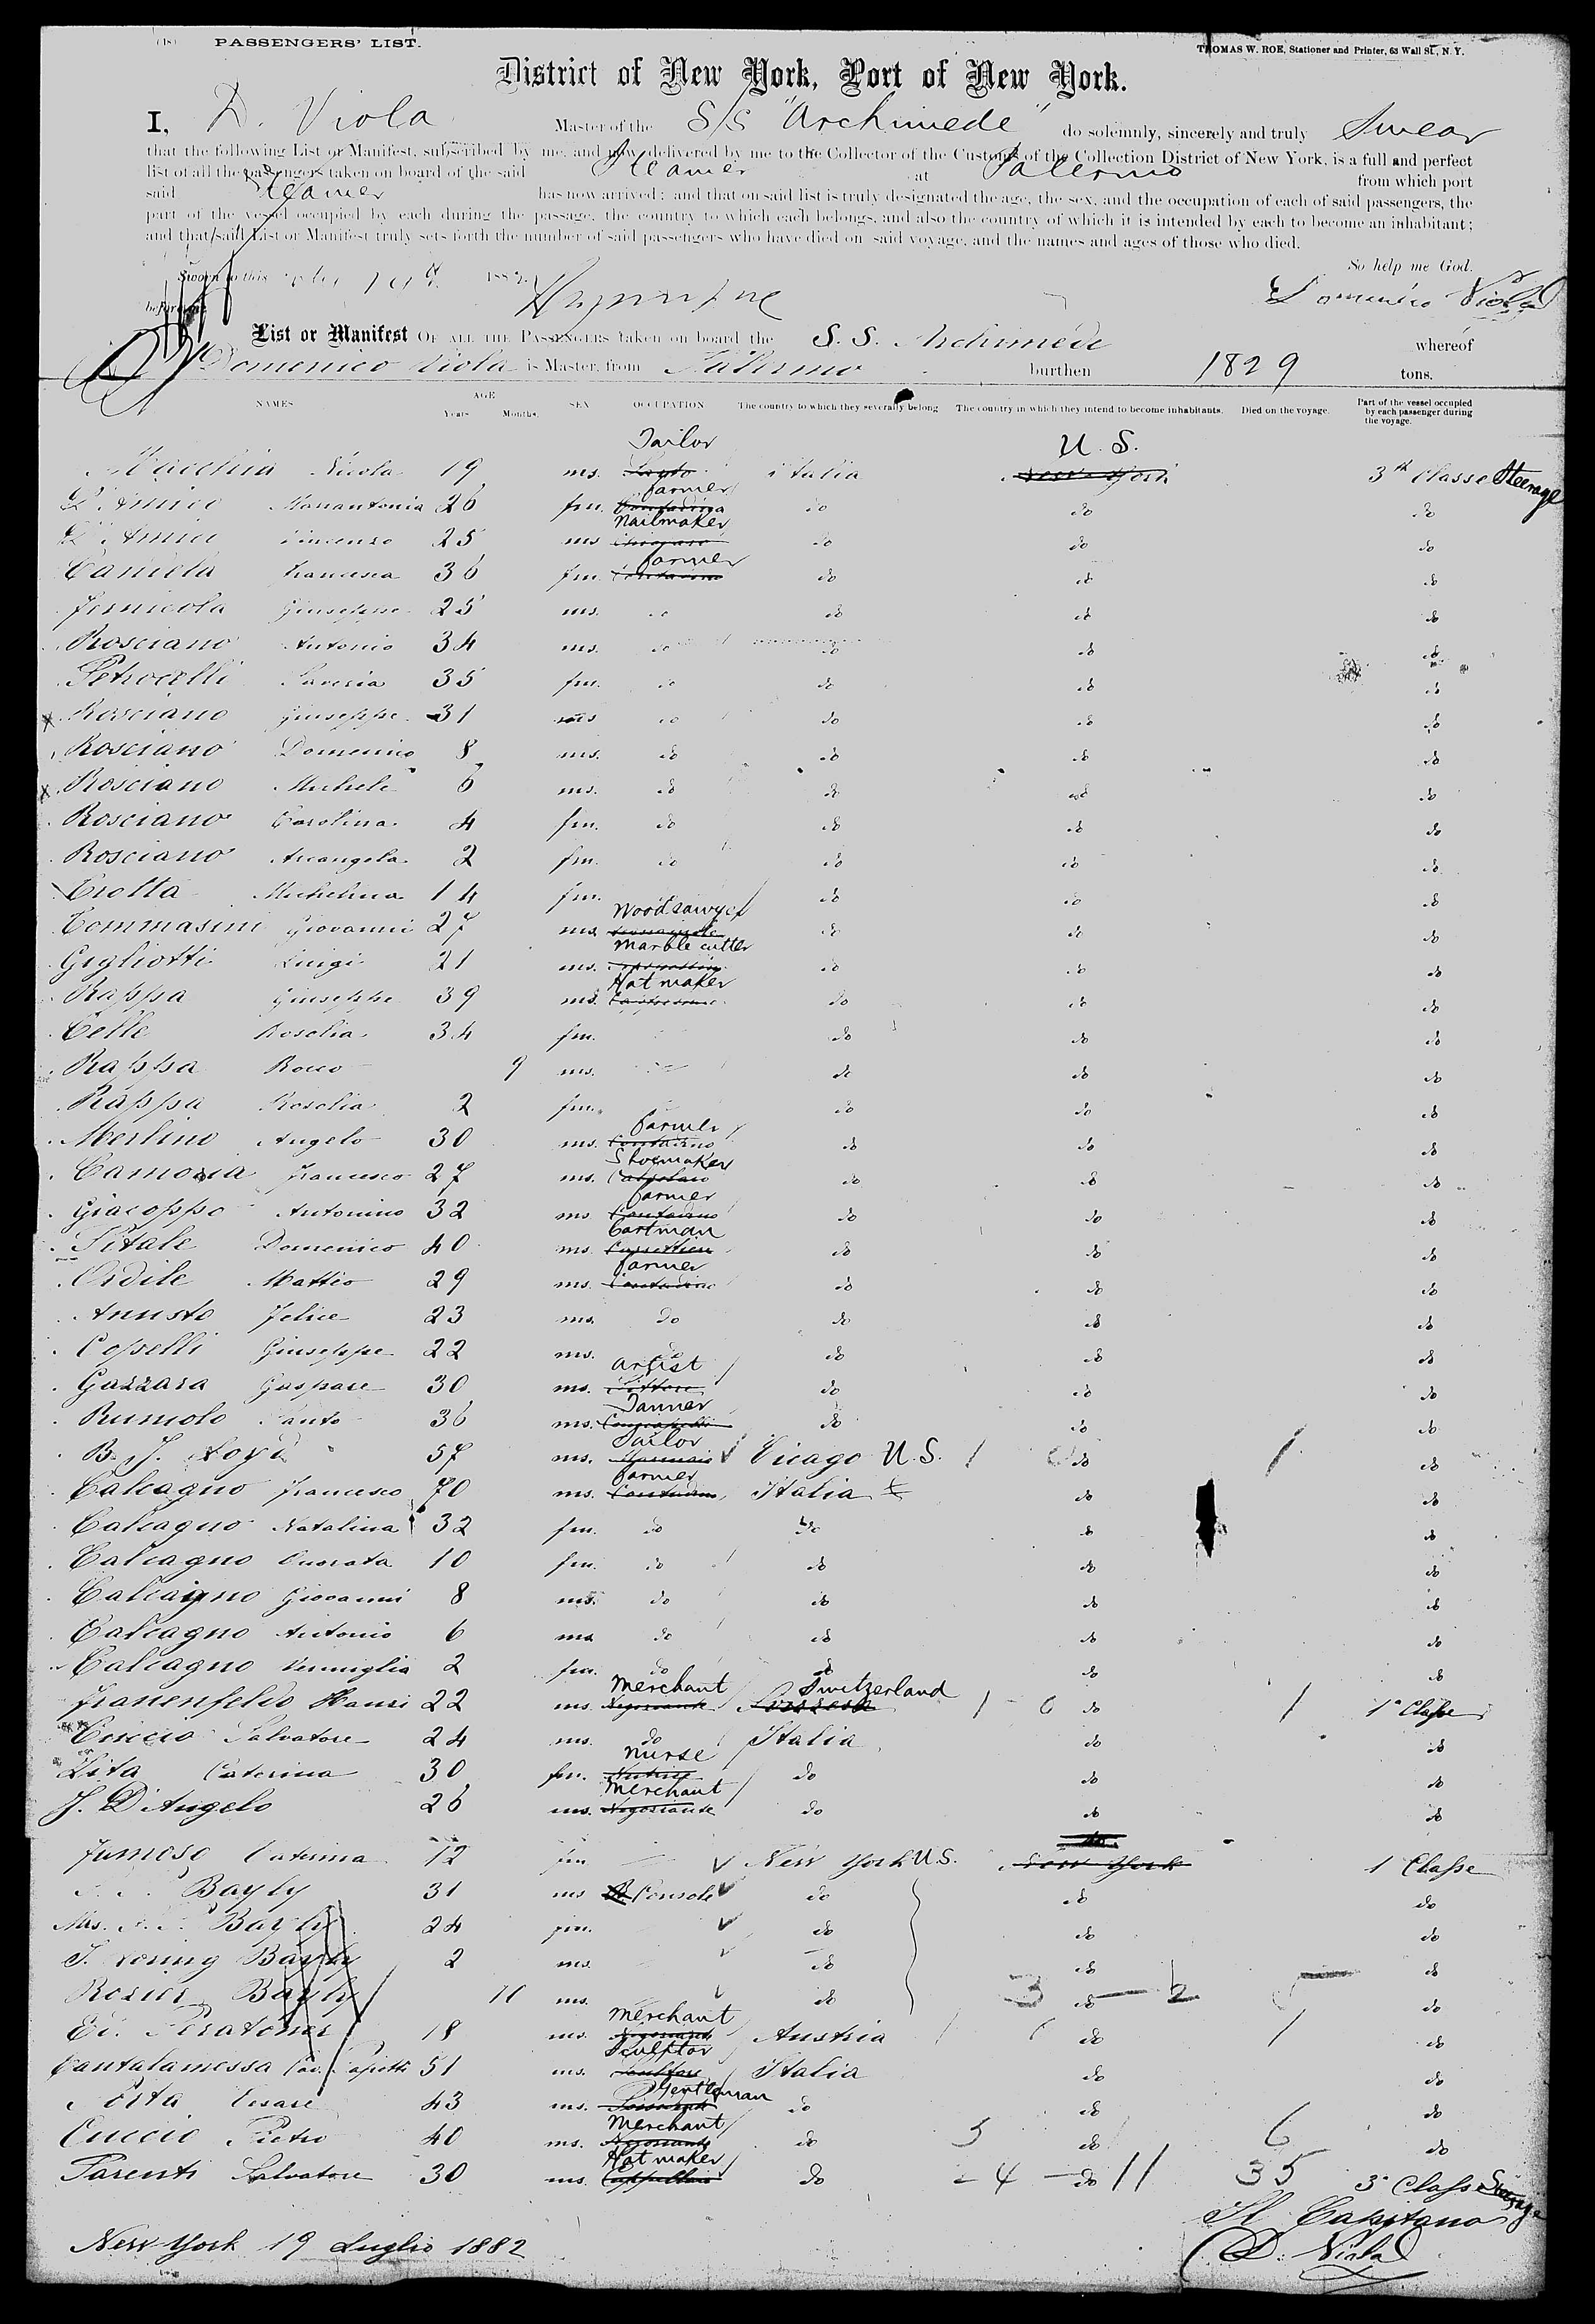 (18) PASSENGERS' LIST.
THOMAS W. ROE, Stationer and Printer, 63 Wall St., N.Y.
District of New York, Port of New York.
I, D. Viola Master of the S/S "Archimede" do solemnly, sincerely and truly Swear
that the following List or Manifest, subscribed by me, and now delivered by me to the Collector of the Customs of the Collection District of New York, is a full and perfect
list of all the passengers taken on board of the said Steamer at Palermo from which port
said Steamer has now arrived; and that on said list is truly designated the age, the sex, and the occupation of each of said passengers, the
part of the vessel occupied by each during the passage, the country to which each belongs, and also the country of which it is intended by each to become an inhabitant;
and that said List or Manifest truly sets forth the number of said passengers who have died on said voyage, and the names and ages of those who died.
So help me God.
Sworn to this 19 1882
before me
Domenico Viola
List or Manifest OF ALL THE PASSENGERS taken on board the S. S. Archimede whereof
Domenico Viola is Master, from Palermo burthen 1829 tons.
NAMES AGE Years Months. SEX OCCUPATION The country to which they severally belong The country in which they intend to become inhabitants. Died on the voyage. Part of the vessel occupied by each passenger during the voyage.
Tailor U. S.
Macchia Nicola 19 ms. italia New York 3rd Classe Steerage
farmer
D'Amico Mariantonia 26 fm. Contadina do do do
Nailmaker
D'Amico Vincenzo 25 ms do do do
farmer
Caniela Francesca 36 fm. Contadina do do do
Fernicola Giuseppe 25 ms. do do do do
Rosciano Antonio 34 ms. do do do do
Petrocelli Saveria 35 fm. do do do do
x Rosciano Giuseppe 31 ms do do do do
Rosciano Domenico 8 ms. do do do do
x Rosciano Michele 6 ms. do do do do
Rosciano Carolina 4 fm. do do do do
Rosciano Arcangela 2 fm. do do do do
Trotta Michelina 14 fm. do do do
Wood sawyer
Tommasini Giovanni 27 ms. do do do
Marble cutter
Gigliotti Luigi 21 ms. do do do
Hat maker
Rappa Giuseppe 39 ms. do do do
Celle Rosolia 34 fm. do do do
Rappa Rocco 9 ms. do do do
Rappa Rosolia 2 fm. do do do
farmer
Merlino Angelo 30 ms. Contadino do do do
Shoemaker
Camoria Francesco 27 ms. Calzolaio do do do
farmer
Giacoppo Antonino 32 ms Contadino do do do
Cartman
Pitale Domenico 40 ms. Carrettiere do do do
farmer
Ordile Matteo 29 ms. Contadino do do do
Anusto Felice 23 ms. do do do do
Coselli Giuseppe 22 ms. do do do do
artist
Gazzara Gaspare 30 ms. Pittore do do do
Tanner
Rumolo Santo 36 ms. do do do
Tailor
B. J. 57 ms. Cicago U.S. 1 do 1 do
farmer
Calcagno Francesco 70 ms. Contadino Italia do do
Calcagno Natalina 32 fm. do do do do
Calcagno Onorata 10 fm. do do do do
Calcagno Giovanni 8 ms. do do do do
Calcagno Antonio 6 ms do do do do
Calcagno Vermiglia 2 fm. do do do do
Merchant Switzerland
Frauenfeldo Hansi 22 ms Negoziante 1 0 do 1 1a Classe
Cuccio Salvatore 24 ms. do Italia do do
nurse
Lita Caterina 30 fm. Nutrice do do do
Merchant
J. D'Angelo 26 ms. Negoziante do do do
Fumoso Caterina 12 fm New York U.S. New York 1 Classe
Bayly 31 ms Console do do do
Mrs. Bayly 24 fm. do do do
J. Loring Bayly 2 ms. do do do
Rosier Bayly 11 ms. do 3 do 2 do
Merchant
18 ms. Negoziante Austria 1 do 1 do
Sculptor
Cantalamessa Cav. Papotti 51 ms. Scultore Italia do do
Gentleman
Porta Cesare 43 ms. do do do
Merchant
Cuccio Pietro 40 ms. Negoziante do 5 do 6 do
Hat maker
Parenti Salvatore 30 ms. Cappellaio do 24 do 11 35 3a Classe Steerage
Il Capitano
New York 19 Luglio 1882 D. Viola